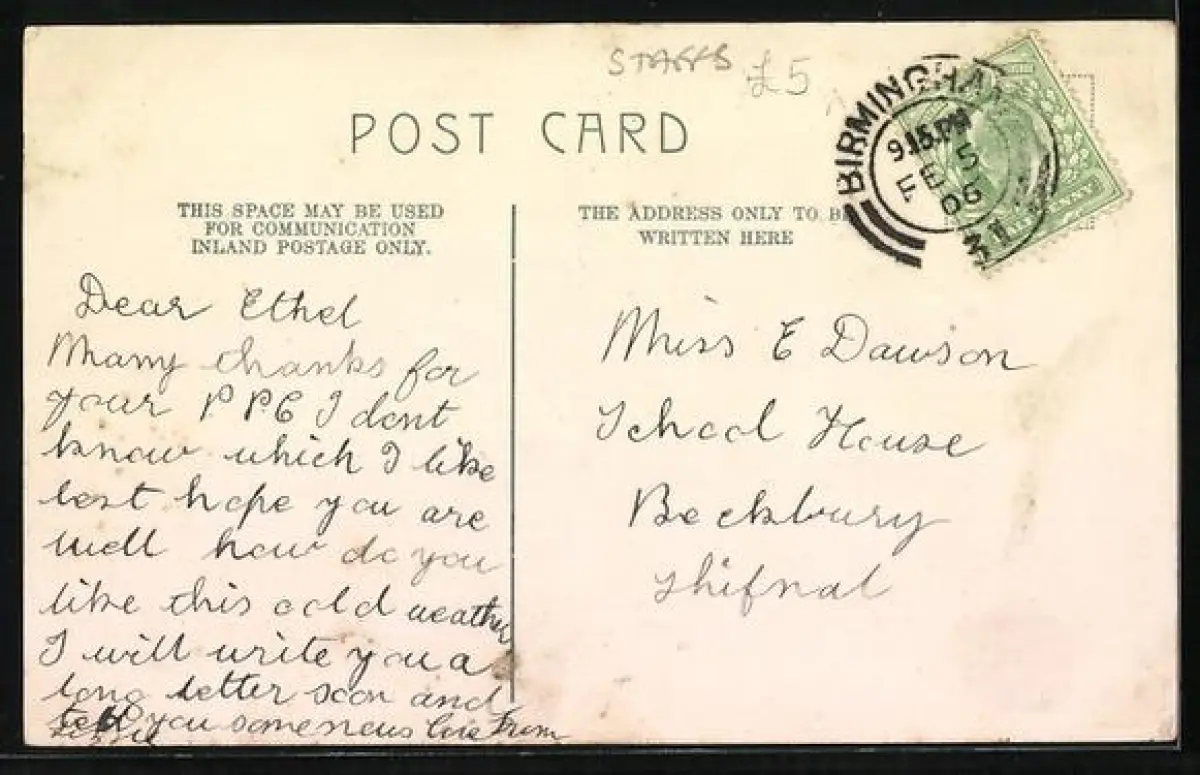 STAFFS £5
POST CARD
BIRMINGHAM
9.15.PM
FE 5
06
THIS SPACE MAY BE USED
FOR COMMUNICATION
INLAND POSTAGE ONLY.
THE ADDRESS ONLY TO BE
WRITTEN HERE
Dear Ethel
Many thanks for
your P P C I dont
know which I like
best hope you are
well how do you
like this cold weather
I will write you a
long letter soon and
tell you some news love from
Miss E Dawson
School House
Beckbury
Shifnal